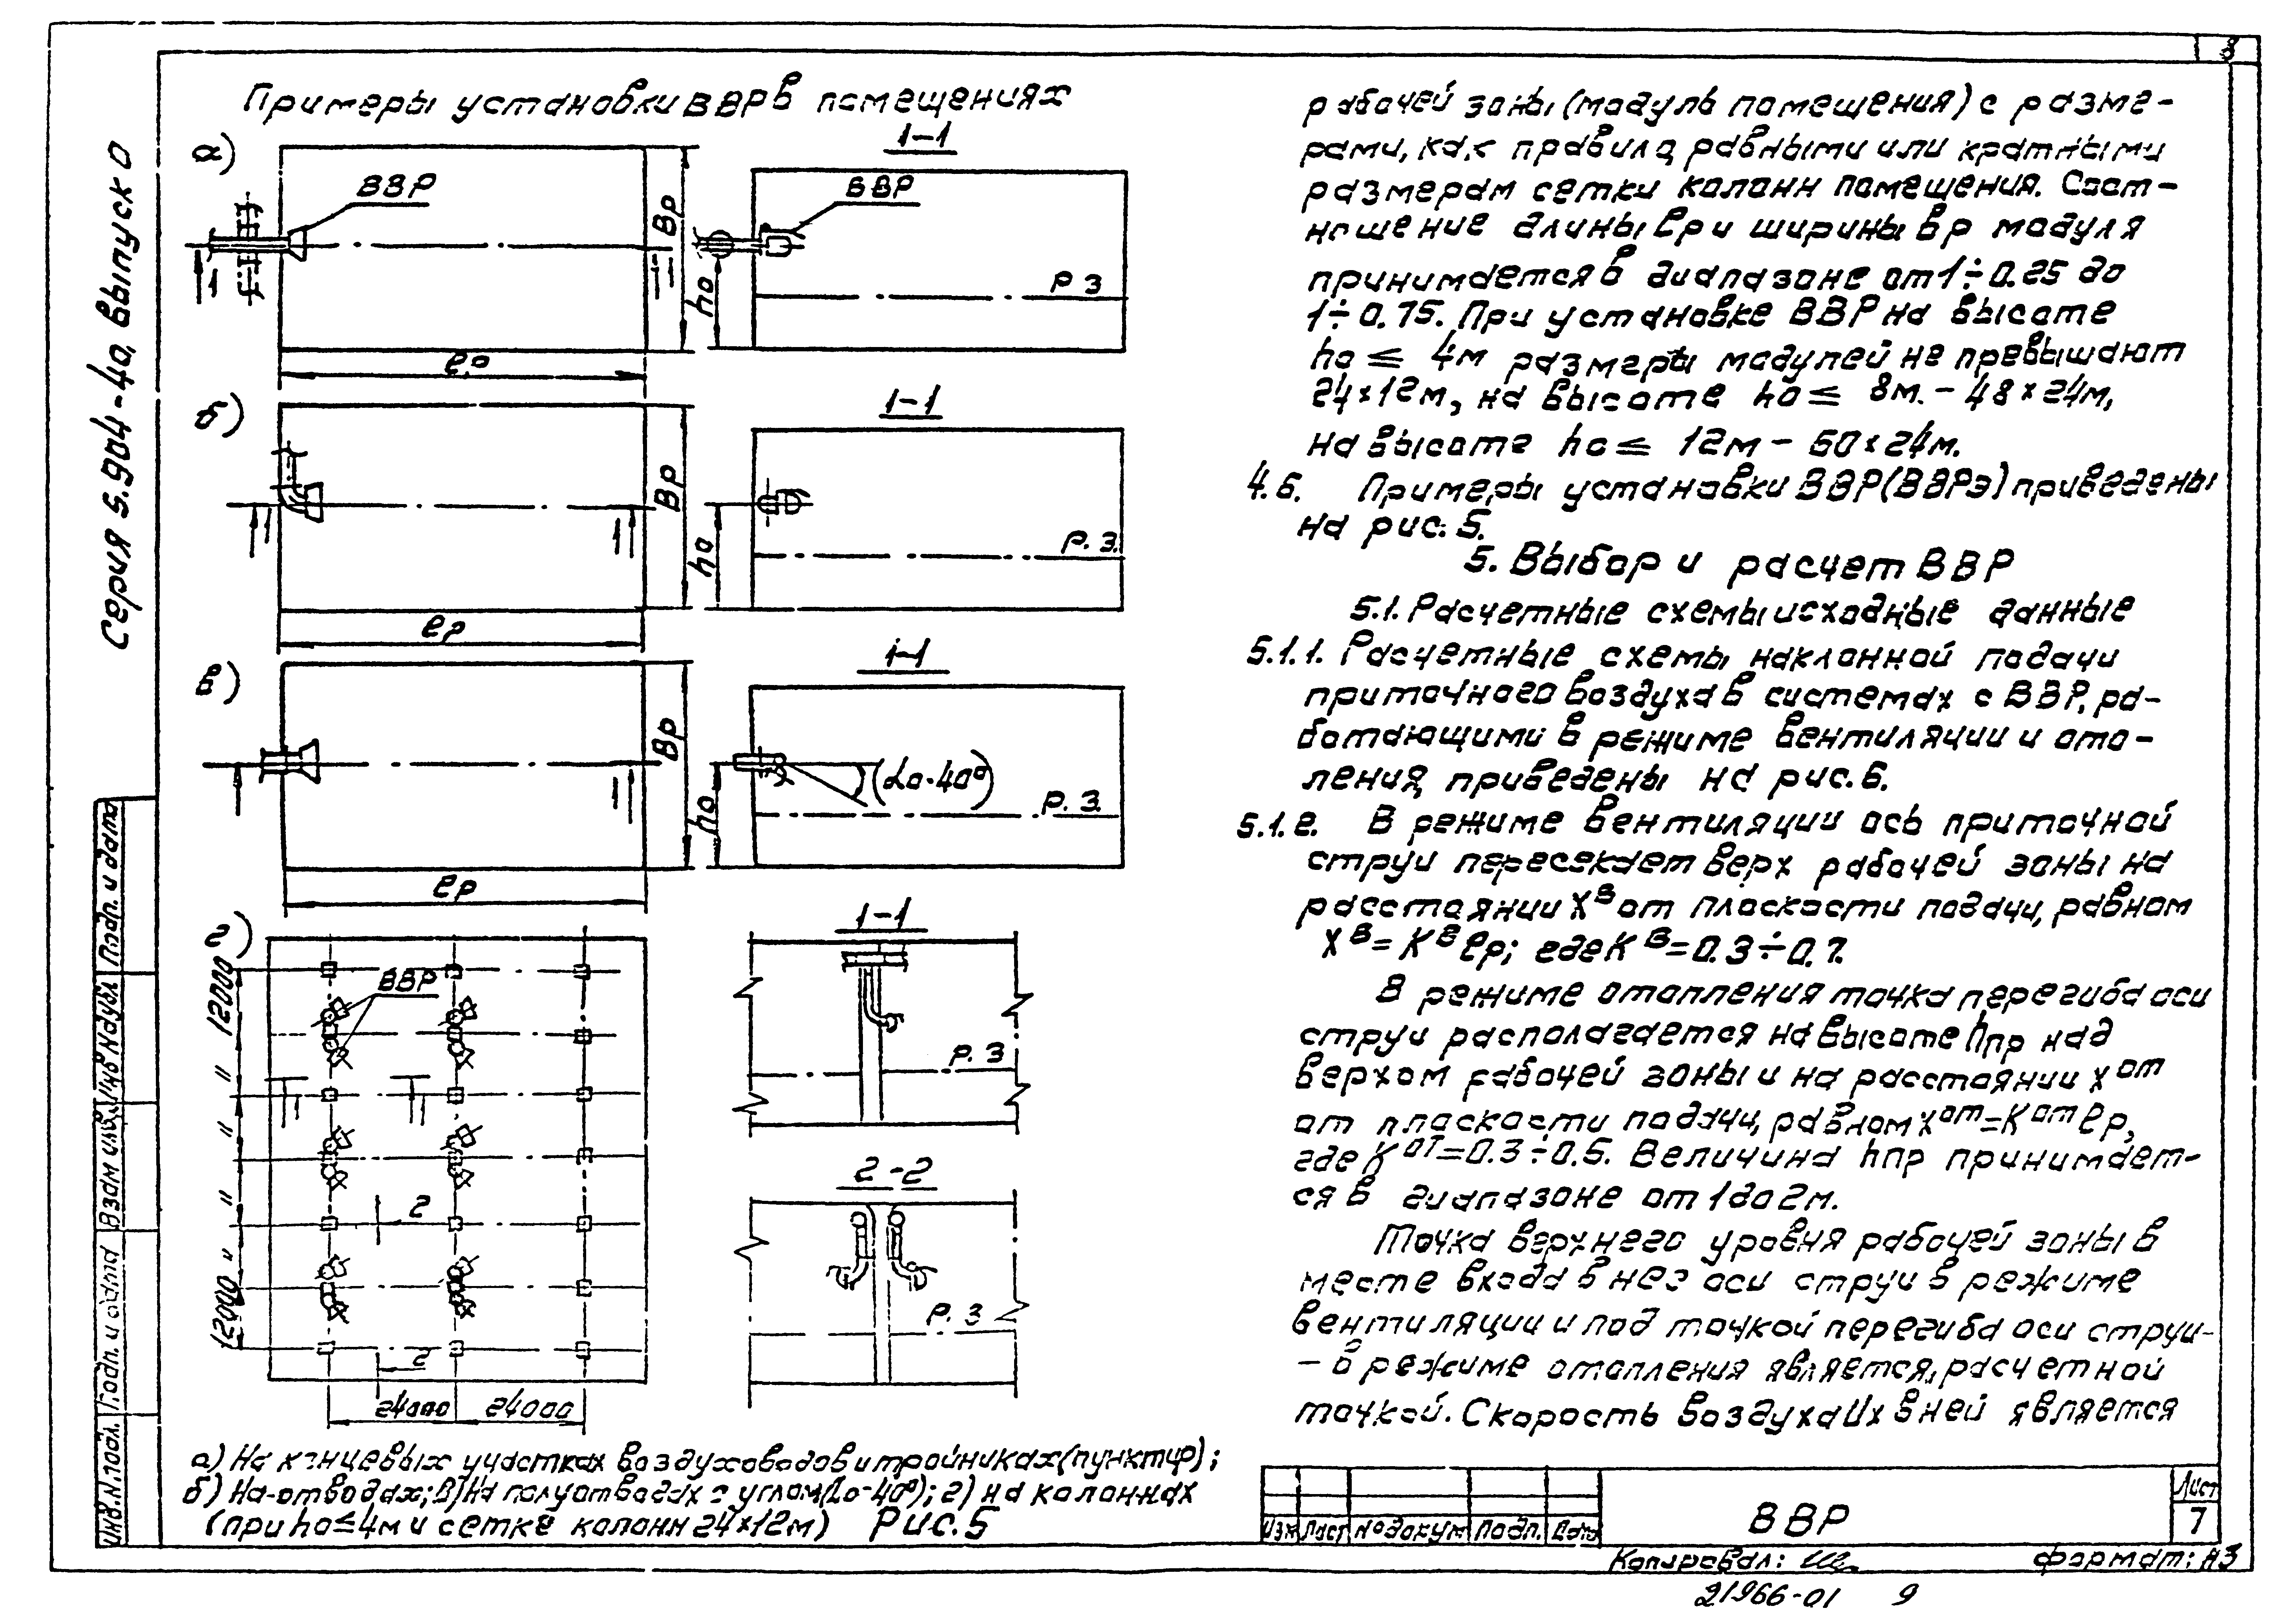 8
Серия 5.904-4а, выпуск 0
Примеры установки ВВР в помещениях
а)
ВВР
Вр
ер
1-1
ВВР
hо
Р З
1
б)
Вр
ер
1-1
hо
Р. З.
в)
Вр
ер
1-1
hо
(αо-40°)
Р. З.
г)
12000
"
"
"
"
12000
ВВР
2
2
24000 24000
1-1
Р. З
2-2
Р. З
а) На концевых участках воздуховодов и тройниках (пунктир);
б) На отводах; в) На полуотводах с углом (αо-40°); г) на колоннах
(при hо ≤ 4м и сетке колонн 24×12м) Рис. 5
рабочей зоны (модуль помещения) с разме-
рами, как правило, равными или кратными
размерам сетки колонн помещения. Соот-
ношение длины ℓр и ширины Вр модуля
принимается в диапазоне от 1÷0.25 до
1÷0.75. При установке ВВР на высоте
hо ≤ 4м размеры модулей не превышают
24×12м, на высоте hо ≤ 8м. – 48×24м,
на высоте hо ≤ 12м – 60×24м.
4.6. Примеры установки ВВР (ВВРЭ) приведены
на рис. 5.
5. Выбор и расчет ВВР
5.1. Расчетные схемы исходные данные
5.1.1. Расчетные схемы наклонной подачи
приточного воздуха в системах с ВВР, ра-
ботающими в режиме вентиляции и отоп-
ления, приведены на рис. 6.
5.1.2. В режиме вентиляции ось приточной
струи пересекает верх рабочей зоны на
расстоянии Хᴮ от плоскости подачи, равном
Хᴮ = Кᴮ ℓр; где Кᴮ = 0.3÷0.7.
В режиме отопления точка перегиба оси
струи располагается на высоте hпр над
верхом рабочей зоны и на расстоянии Х от
от плоскости подачи, равном Х от = К от ℓр,
где К от = 0.3÷0.5. Величина hпр принимает-
ся в диапазоне от 1 до 2м.
Точка верхнего уровня рабочей зоны в
месте входа в нее оси струи в режиме
вентиляции и под точкой перегиба оси струи-
– в режиме отопления является расчетной
точкой. Скорость воздуха Uх в ней является
Инв. N подл. Подп. и дата Взам инв. Инв N дубл Подп. и дата
Изм Лист N докум Подп. Дата
ВВР
Лист
7
Копировал:
формат: А3
21966-01 9